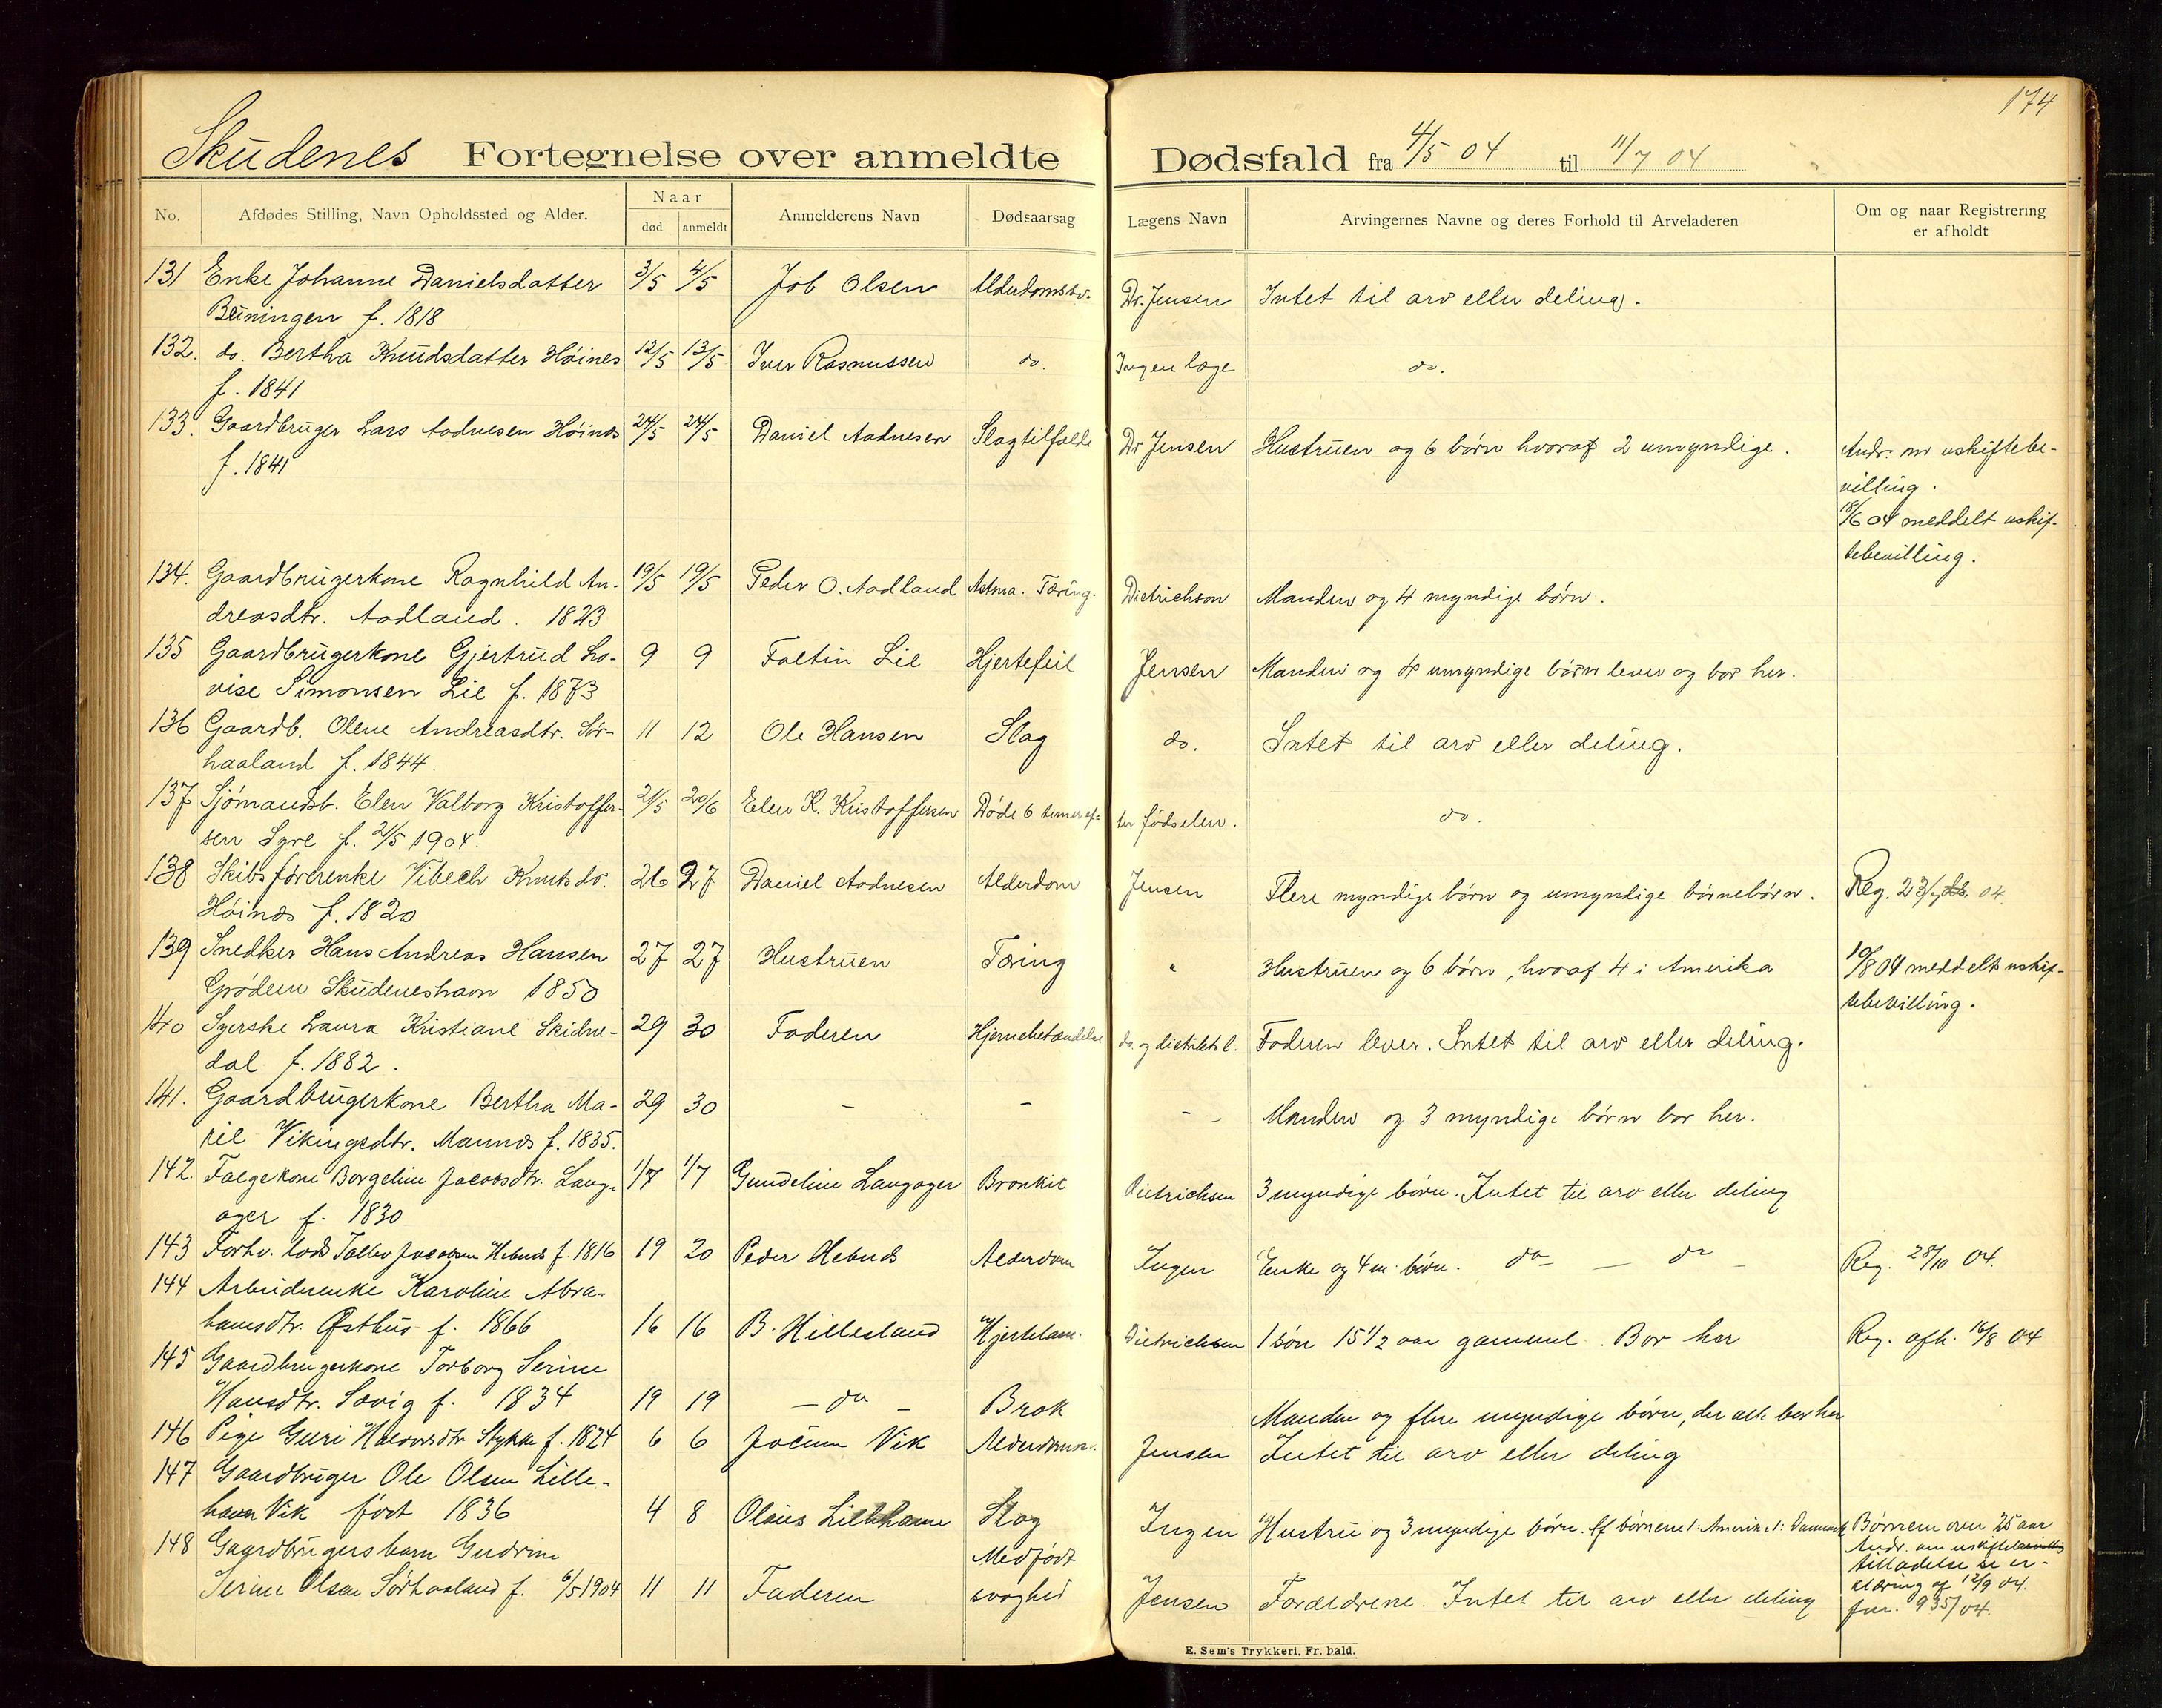 174
Skudenes Fortegnelse over anmeldte Dødsfald fra 4/5 04 til 11/7 04
No. Afdødes Stilling, Navn Opholdssted og Alder. Naar død anmeldt Anmelderens Navn Dødsaarsag Lægens Navn Arvingernes Navne og deres Forhold til Arveladeren Om og naar Registrering er afholdt
131 Enke Johanne Danielsdatter 3/5 4/5 Job Olsen Alderdomssv. Dr. Jensen Intet til arv eller deling.
Buningen f. 1818
132. do. Bertha Knudsdatter Höines 12/5 13/5 Iver Rasmussen do. Ingen læge do.
f. 1841
133. Gaardbruger Lars Aadnesen Höinæs 24/5 24/5 Daniel Aadnesen Slagtilfælde Dr Jensen Hustruen og 6 börn hvoraf 2 umyndige. Andr. om uskiftebe-
f. 1841 villing.
18/6 04 meddelt uskif-
tebevilling.
134. Gaardbrugerkone Ragnhild An- 19/5 19/5 Peder O. Aadland Astma. Tæring. Dietrichson Manden og 4 myndige börn.
dreasdtr. Aadland. 1823
135 Gaardbrugerkone Gjertrud Lo- 9 9 Foltin Lie Hjertefeil Jensen Manden og 4 umyndige börn lever og bor her.
vise Simonsen Lie f. 1873
136 Gaardb. Olene Andreasdtr. Sör- 11 12 Ole Hansen Slag do. Intet til arv eller deling.
haaland f. 1844.
137 Sjömandsb. Elen Valborg Kristoffer- 21/5 20/6 Elen K. Kristoffersen Döde 6 timer ef- ter födselen. do.
sen Syre f. 21/5 1904.
138 Skibsförerenke Vibech Knutsd. 26 27 Daniel Aadnesen Alderdom Jensen Flere myndige börn og umyndige börnebörn. Reg. 23/7 04.
Höinæs f. 1820
139 Snedker Hans Andreas Hansen 27 27 Hustruen Tæring " Hustruen og 6 börn, hvoraf 4 i Amerika 10/8 04 meddelt uskif-
Grödem Skudeneshavn 1850 tebevilling.
140 Syerske Laura Kristiane Skidne- 29 30 Faderen Hjernebetændelse do. og distriktsl. Faderen lever. Intet til arv eller deling.
dal f. 1882.
141. Gaardbrugerkone Bertha Ma- 29 30 – – – – Manden og 3 myndige börn bor her.
ril Vikingsdtr. Mannæs f. 1835.
142. Folgekone Borgeline Jacobsdtr. Lang- 1/7 1/7 Gundeline Langager Bronkit Dietrichsen 3 myndige börn. Intet til arv eller deling
ager f. 1830
143 Forhv. lods Tollev Jacobsen Hebnæs f. 1816 19 20 Peder Hebnæs Alderdom Ingen Enke og 4 m. börn. do – do – Reg. 28/10 04.
144 Arbeiderenke Karoline Abra-
hamsdtr. Østhus f. 1866 16 16 B. Hillesland Hjertelam. Dietrichsen 1 sön 15 1/2 aar gammel. Bor her Reg. afh. 16/8 04
145 Gaardbrugerkone Torborg Serine
Hansdtr. Sævig f. 1834 19 19 – do – Brok Manden og flere myndige börn, der alle bor her
146 Pige Guri Halvorsdtr Stykke f. 1824 6 6 Jocum Vik Alderdomssv. Jensen Intet til arv eller deling
147 Gaardbruger Ole Olsen Lille-
havn Vik födt 1836 4 8 Olaus Lillehavn Slag Ingen Hustru og 3 myndige börn. Af börnene 1 i Amerika 1 i Danmark Børnene over 25 aar
148 Gaardbrugersbarn Gudrine Medfödt Andr. om uskiftebevilling
tilladelse se er-
Serine Olsen Sörhaaland f. 6/5 1904 11 11 Faderen svaghed Jensen Forældrene. Intet til arv eller deling klæring af 12/9 04.
jnr. 935/04.
E. Sem's Trykkeri, Fr. hald.